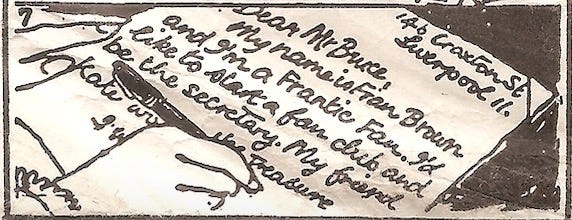 146 Croxton St
Liverpool 11.
Dear Mr Bruce,
My name is Fran Brown
and I'm a Frantic Fan. I'd
like to start a fan club and
be the secretary. My friend
Kate will be the treasure